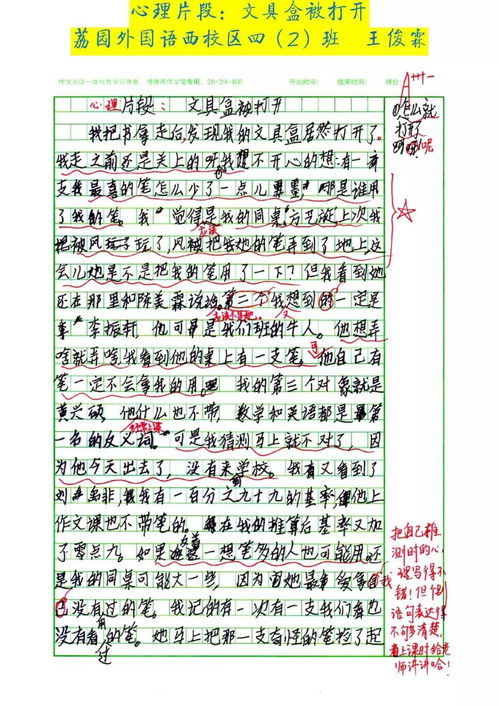 心理片段：文具盒被打开
荔园外国语西校区四（2）班 王俊霖
开始时间： 结束时间： 得分：
A+++
心理片段：文具盒被打开
怎么就打开了啊呢
我把书拿走后发现我的文具盒居然打开了。
我走之前还是关上的呀我不开心的想：有一
支我最喜的笔怎么少了一点儿墨，那是谁用
了我的笔。我觉得应该是我的同桌上次我
把被风玩了，风被把我她的笔弄到了地上，这
会儿她是不是把我的笔用了一下？但我看到她
还在那里和陈美霖说话。第二个我想到的一定是
李振轩，他可是我们班的牛人。他想弄
啥就弄啥我看到他的桌上有一支笔。他自己有
笔一定不会拿我的用。我的第三个对象就是
黄兴硕，他什么也不带，数学和英语都是第
一名的反义词。可是我猜测马上就不对了，因
为他今天出去了，没有来学校。我有又看到了
刘禹非，我有一百分之九十九的基率，他上
作文课也不带笔的。在我的推算后基率又加
了零点九。如果一想笔多的人也可能用，还
是我的同桌可能大一些，因为她最
没有过的笔，我记的有一次有一支我们都也
没有看过的笔。她马上把那一支有怪的笔捡了起
把自己推测时的心理写得不错！但个别语句表达得不够清楚，上课时给老师讲讲哈！